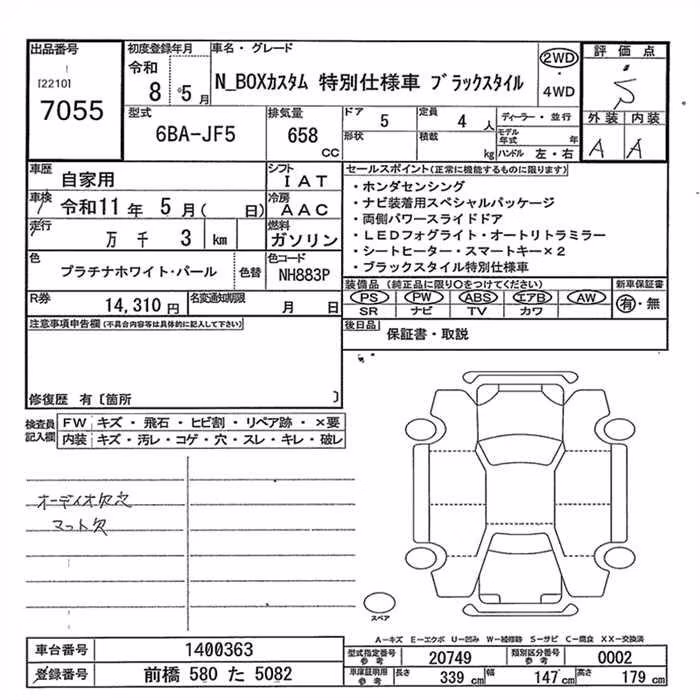 出品番号
[2210]
7055
初度登録年月
令和
8 5月
車名・グレード
N_BOXカスタム 特別仕様車 ブラックスタイル
2WD
・
4WD
評価点
S
外装 内装
A A
型式
6BA-JF5
排気量
658
CC
ドア
5
定員
4 人
形状
積載
kg
ディーラー・並行
モデル年式 年
ハンドル 左・右
車歴
自家用
シフト
IAT
車検
令和11年 5月( 日)
冷房
AAC
走行
万 千 3 km
燃料
ガソリン
色
プラチナホワイト・パール
色替
色コード
NH883P
R券
14,310円
名変通知期限
月 日
セールスポイント(正常に機能するものに限ります)
・ホンダセンシング
・ナビ装着用スペシャルパッケージ
・両側パワースライドドア
・LEDフォグライト・オートリトラミラー
・シートヒーター・スマートキー×2
・ブラックスタイル特別仕様車
装備品(純正品に限り○をつけてください)
PS PW ABS エアB AW
SR ナビ TV カワ
新車保証書
有・無
後日品
保証書・取説
注意事項申告欄(不具合内容等は具体的に記入して下さい)
修復歴 有〔箇所 〕
検査員記入欄
FW キズ・飛石・ヒビ割・リペア跡・×要
内装 キズ・汚レ・コゲ・穴・スレ・キレ・破レ
オーディオ欠欠
マット欠
スペア
A―キズ E―エクボ U―凹み W―補修跡 S―サビ C―腐食 XX―交換済
車台番号
1400363
登録番号
前橋 580 た 5082
型式指定番号
参考
20749
類別区分番号
参考
0002
車庫証明用
参考
長さ 339 cm
幅 147 cm
高さ 179 cm